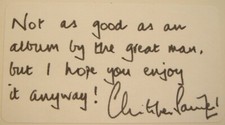 Not as good as an
album by the great man,
but I hope you enjoy
it anyway!